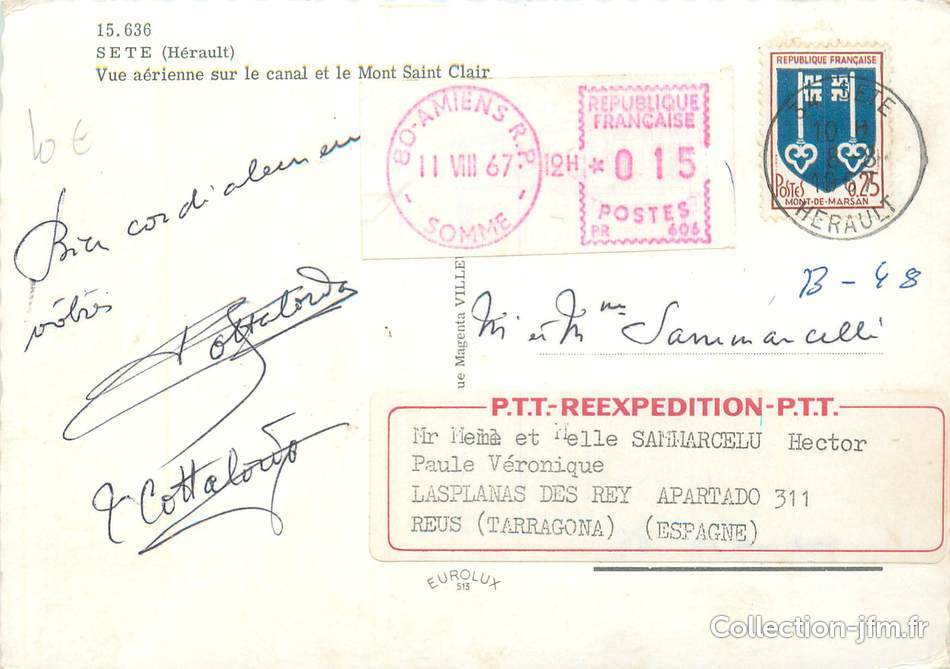 15.636
SETE (Hérault)
Vue aérienne sur le canal et le Mont Saint Clair
10 €
80-AMIENS R.P.
11 VIII 67
12H
SOMME
REPUBLIQUE
FRANÇAISE
*015
POSTES
PR 606
REPUBLIQUE FRANÇAISE
POSTES 0.25
MONT-DE-MARSAN
SETE
10 H
8 8
HERAULT
Bien cordialement
vôtres
Cottalorda
Cottalorda
ue Magenta VILLEU
B - 48
M et Mme Sammarcelli
P.T.T.-REEXPEDITION-P.T.T.
Mr Meme et Melle SAMMARCELU Hector
Paule Véronique
LASPLANAS DES REY APARTADO 311
REUS (TARRAGONA) (ESPAGNE)
EUROLUX
513
Collection-jfm.fr